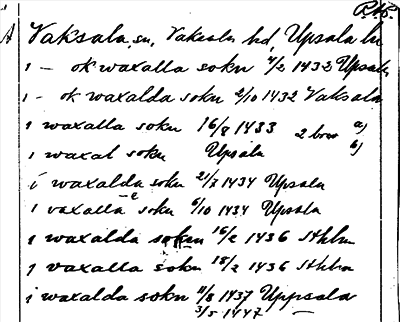 A Vaksala, sn, Vaksala hd, Upsala ln
i – ok waxalla sokn 4/2 1432 Upsala
i – ok waxalda sokn 2/10 1432 Vaksala
i waxalla sokn 16/8 1433 2 brev a)
i waxal sokn Upsala b)
i waxalda sokn 21/3 1434 Upsala
i vaxalla sokn 6/10 1434 Upsala
i waxalda sokn 16/2 1436 Sthlm
i vaxalla sokn 18/2 1436 Sthlm
i waxalda sokn 11/8 1437 Uppsala
3/5 1447 —